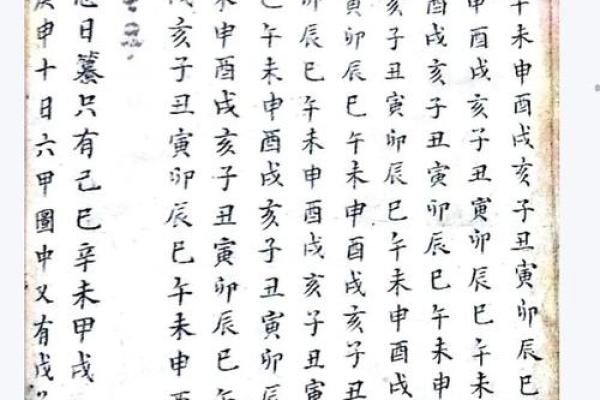 午未申酉戌亥子丑寅卯辰巳
申酉戌亥子丑寅卯辰巳午未
酉戌亥子丑寅卯辰巳午未申
亥子丑寅卯辰巳午未申酉戌
寅卯辰巳午未申酉戌亥子丑
卯辰巳午未申酉戌亥子丑寅
巳午未申酉戌亥子丑寅卯辰
未申酉戌亥子丑寅卯辰巳午
戌亥子丑寅卯辰巳午未申酉
日纂只有己巳辛未甲戌
庚申十日六甲圖中又有戊